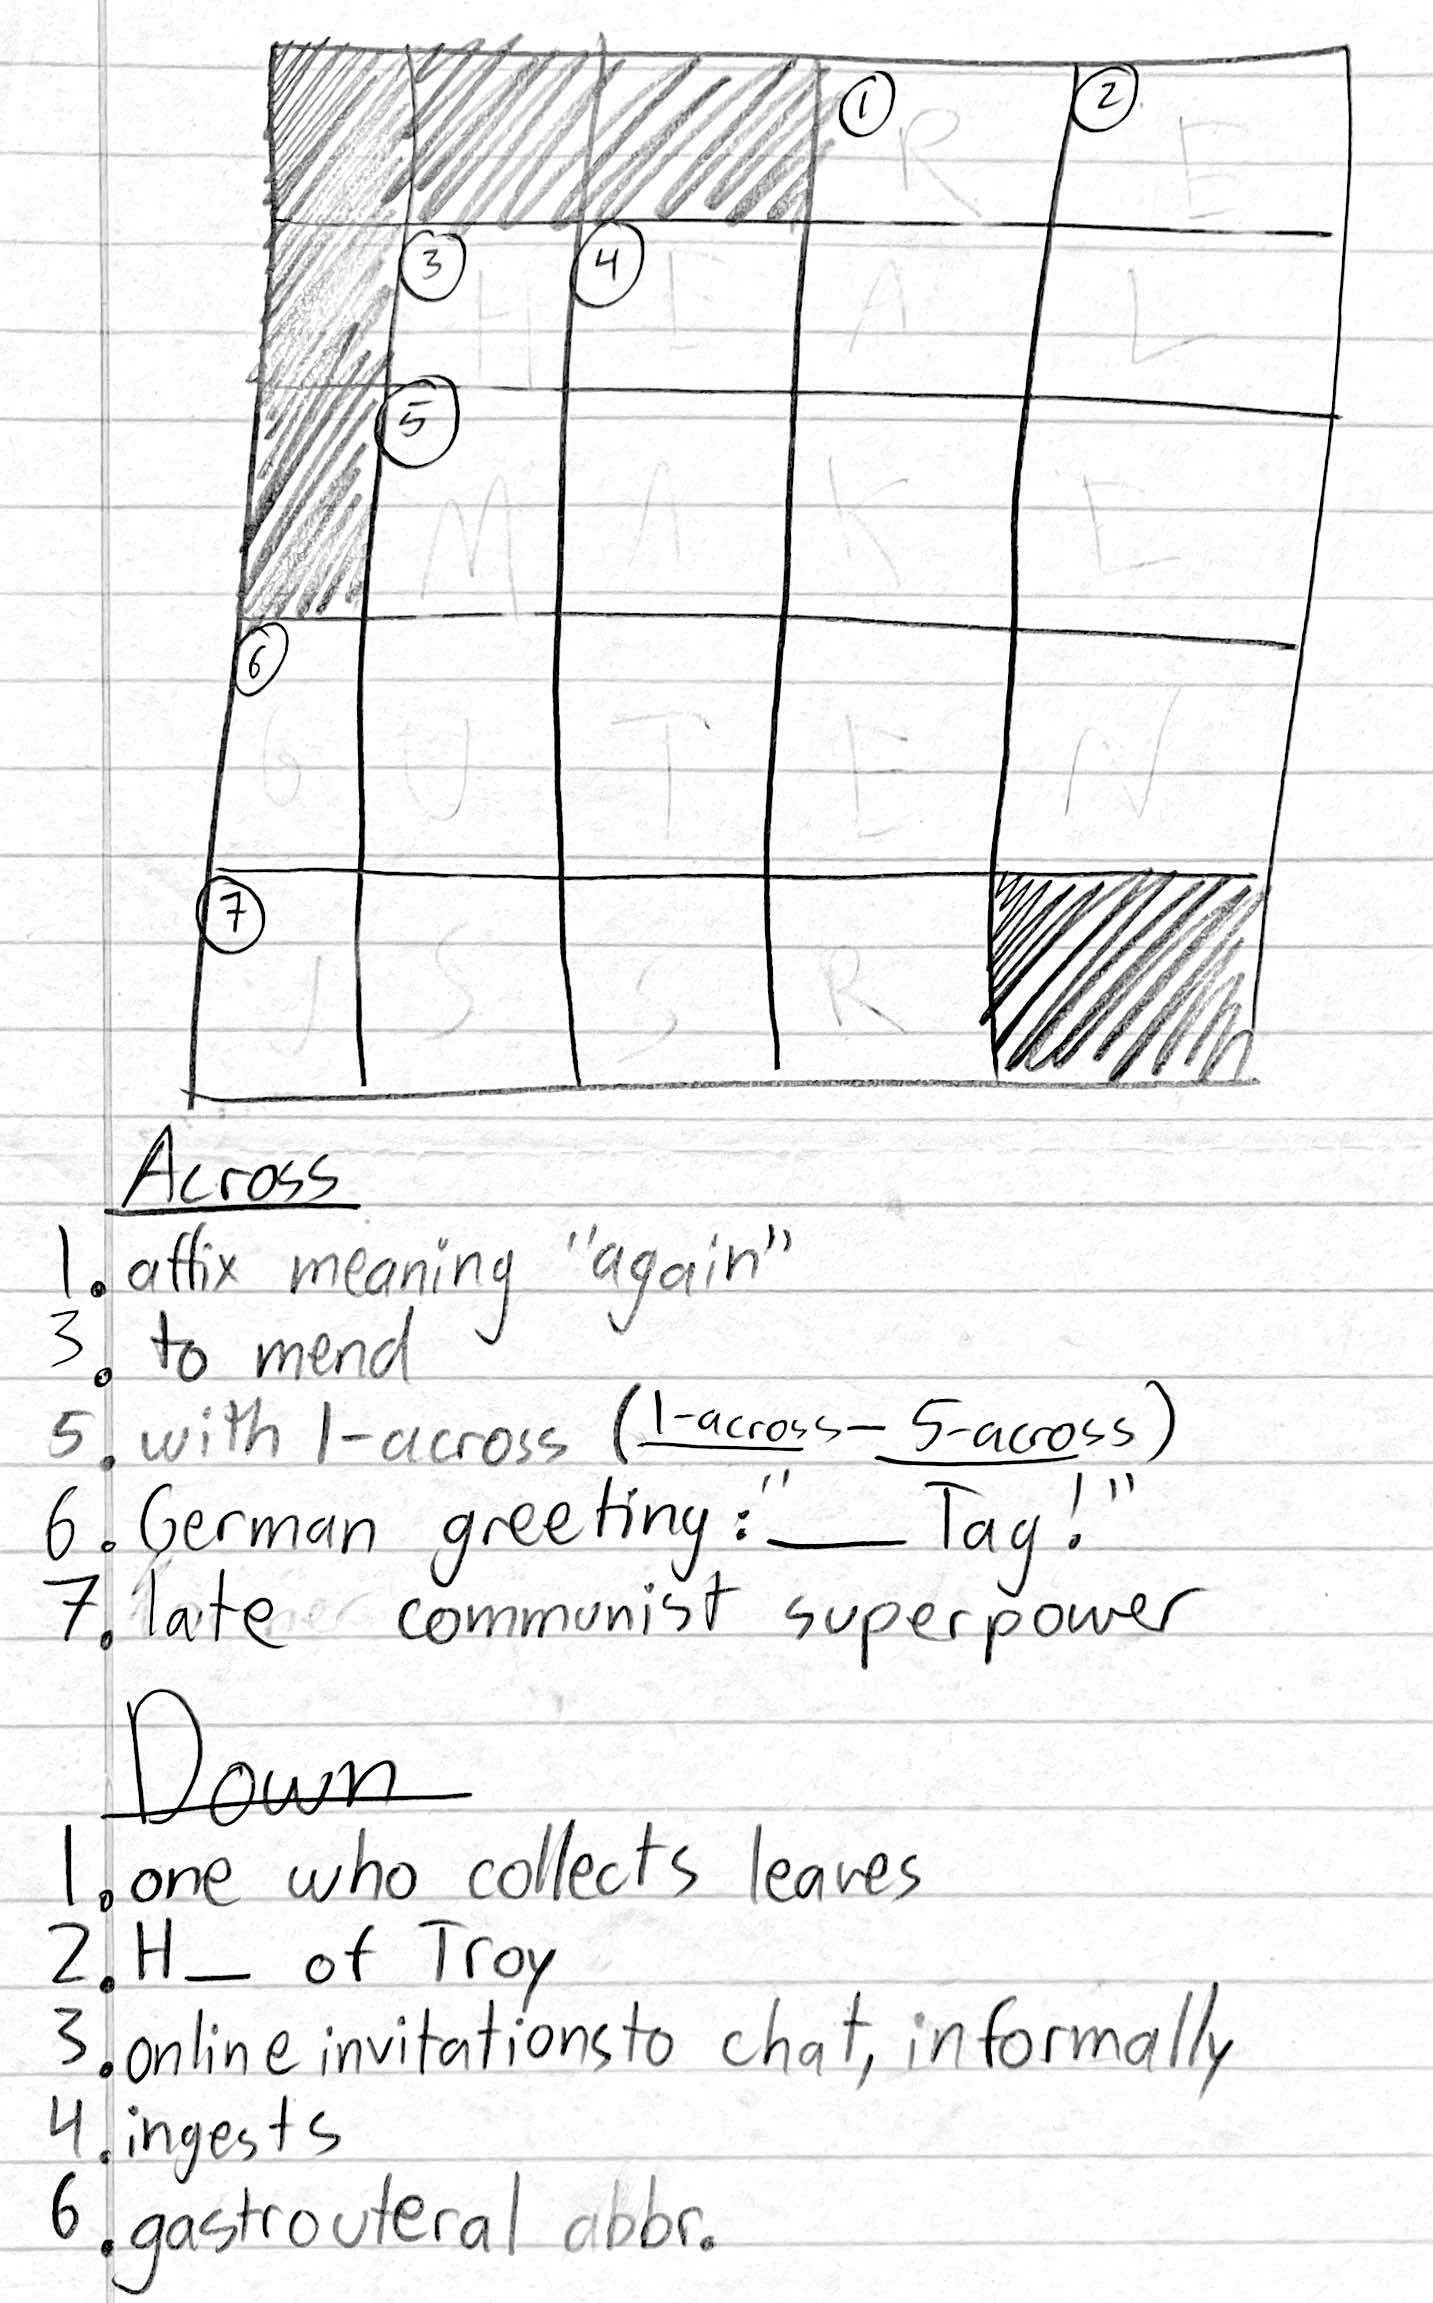 1 R 2 E
3 H 4 E A L
5 M A K E
6 G U T E N
7 U S S R
Across
1. affix meaning "again"
3. to mend
5. with 1-across (1-across - 5-across)
6. German greeting: "__ Tag!"
7. late communist superpower
Down
1. one who collects leaves
2. H_ of Troy
3. online invitations to chat, informally
4. ingests
6. gastrouteral abbr.